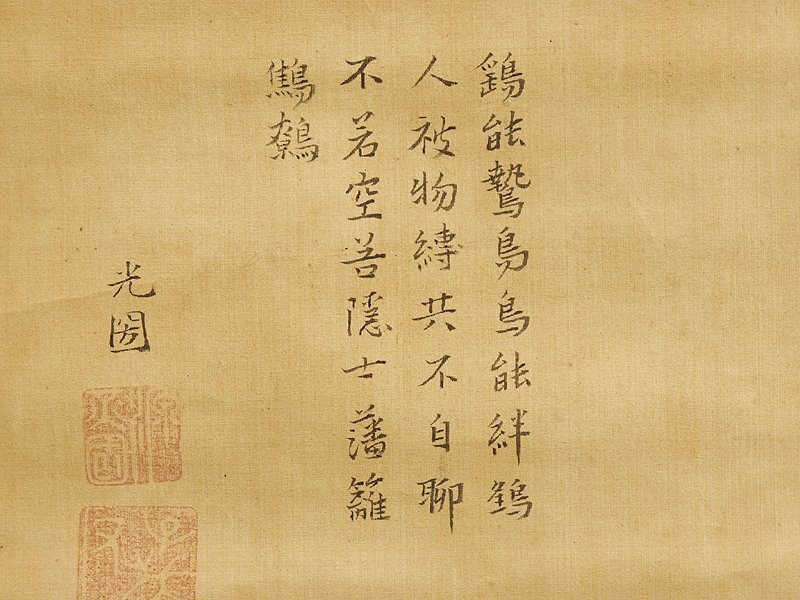 鷂能鷙鳥鳥能絆鷂
人被物縛共不自聊
不若空善隱士藩籬
鷦鷯
光圀